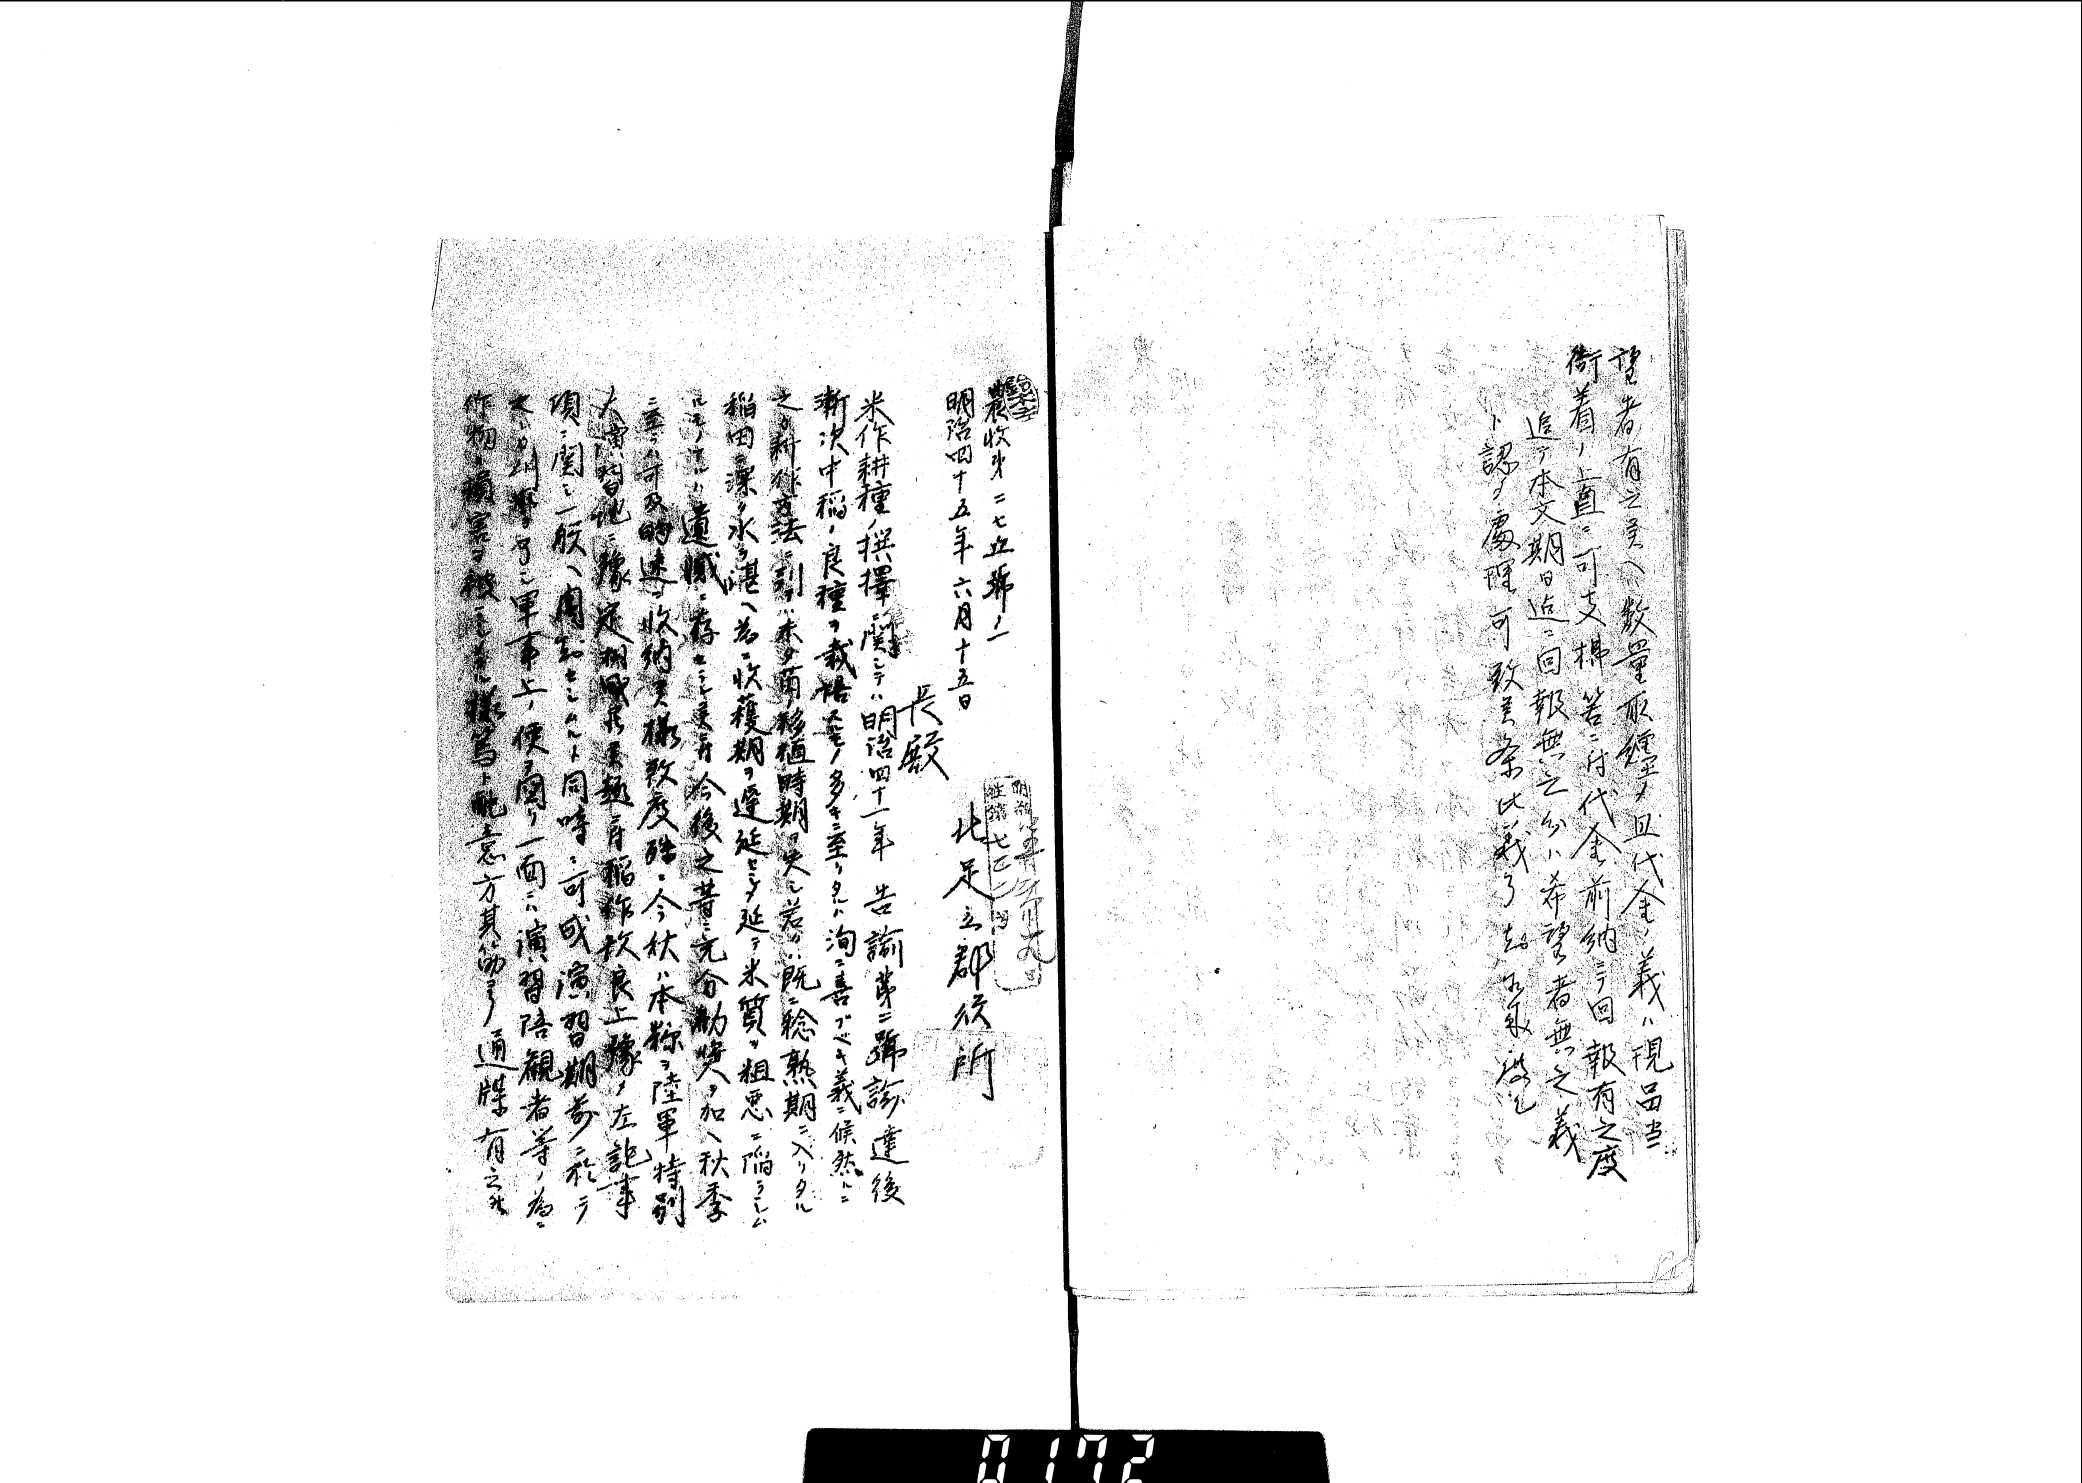 望者有之候ハヽ数量取纒メ且代金ノ義ハ現品当
衙着ノ上直ニ可支棉筈ニ付代金前納ニテ回報有之度
追テ本文期日迄ニ回報無之分ハ希望者無之義
ト認メ處理可致候条此義
農收第二七五號ノ一
明治四十五年六月十五日
北足立郡役所
長殿
米作耕種ノ撰擇ニ関シテハ明治四十一年告諭第二號諭達後
漸次中稲ノ良種ヲ栽培スルモノ多キニ至リタルハ洵ニ喜ブベキ義ニ候然ルニ
之カ耕作方法ニ到テハ未タ苗ノ移植時期ヲ失シ若クハ既ニ稔熟期ニ入リタル
稲田ニ深ク水ヲ湛ヘ為ニ收穫期ヲ遅延セシメ延テ米質ヲ粗悪ニ陥ラシム
ルモノアルハ遺憾ニ存セラレ候ニ付今後之昔ニ充分勧奨ヲ加ヘ秋季
ニ至ラハ可及的速ニ收納候様致度殊ニ今秋ハ本縣ヲ陸軍特別
大演習地ニ豫定相成候趣ニ付稲作改良上豫メ左記事
項ニ関シ一般ヘ周知セシムルト同時ニ可成演習期前ニ於テ
軍事上ノ便ヲ図リ一面ニハ演習陪観者等ノ為ニ
作物ニ損害ヲ被ラシメサル様篤ト配意方其筋ヨリ通牒有之候
0172